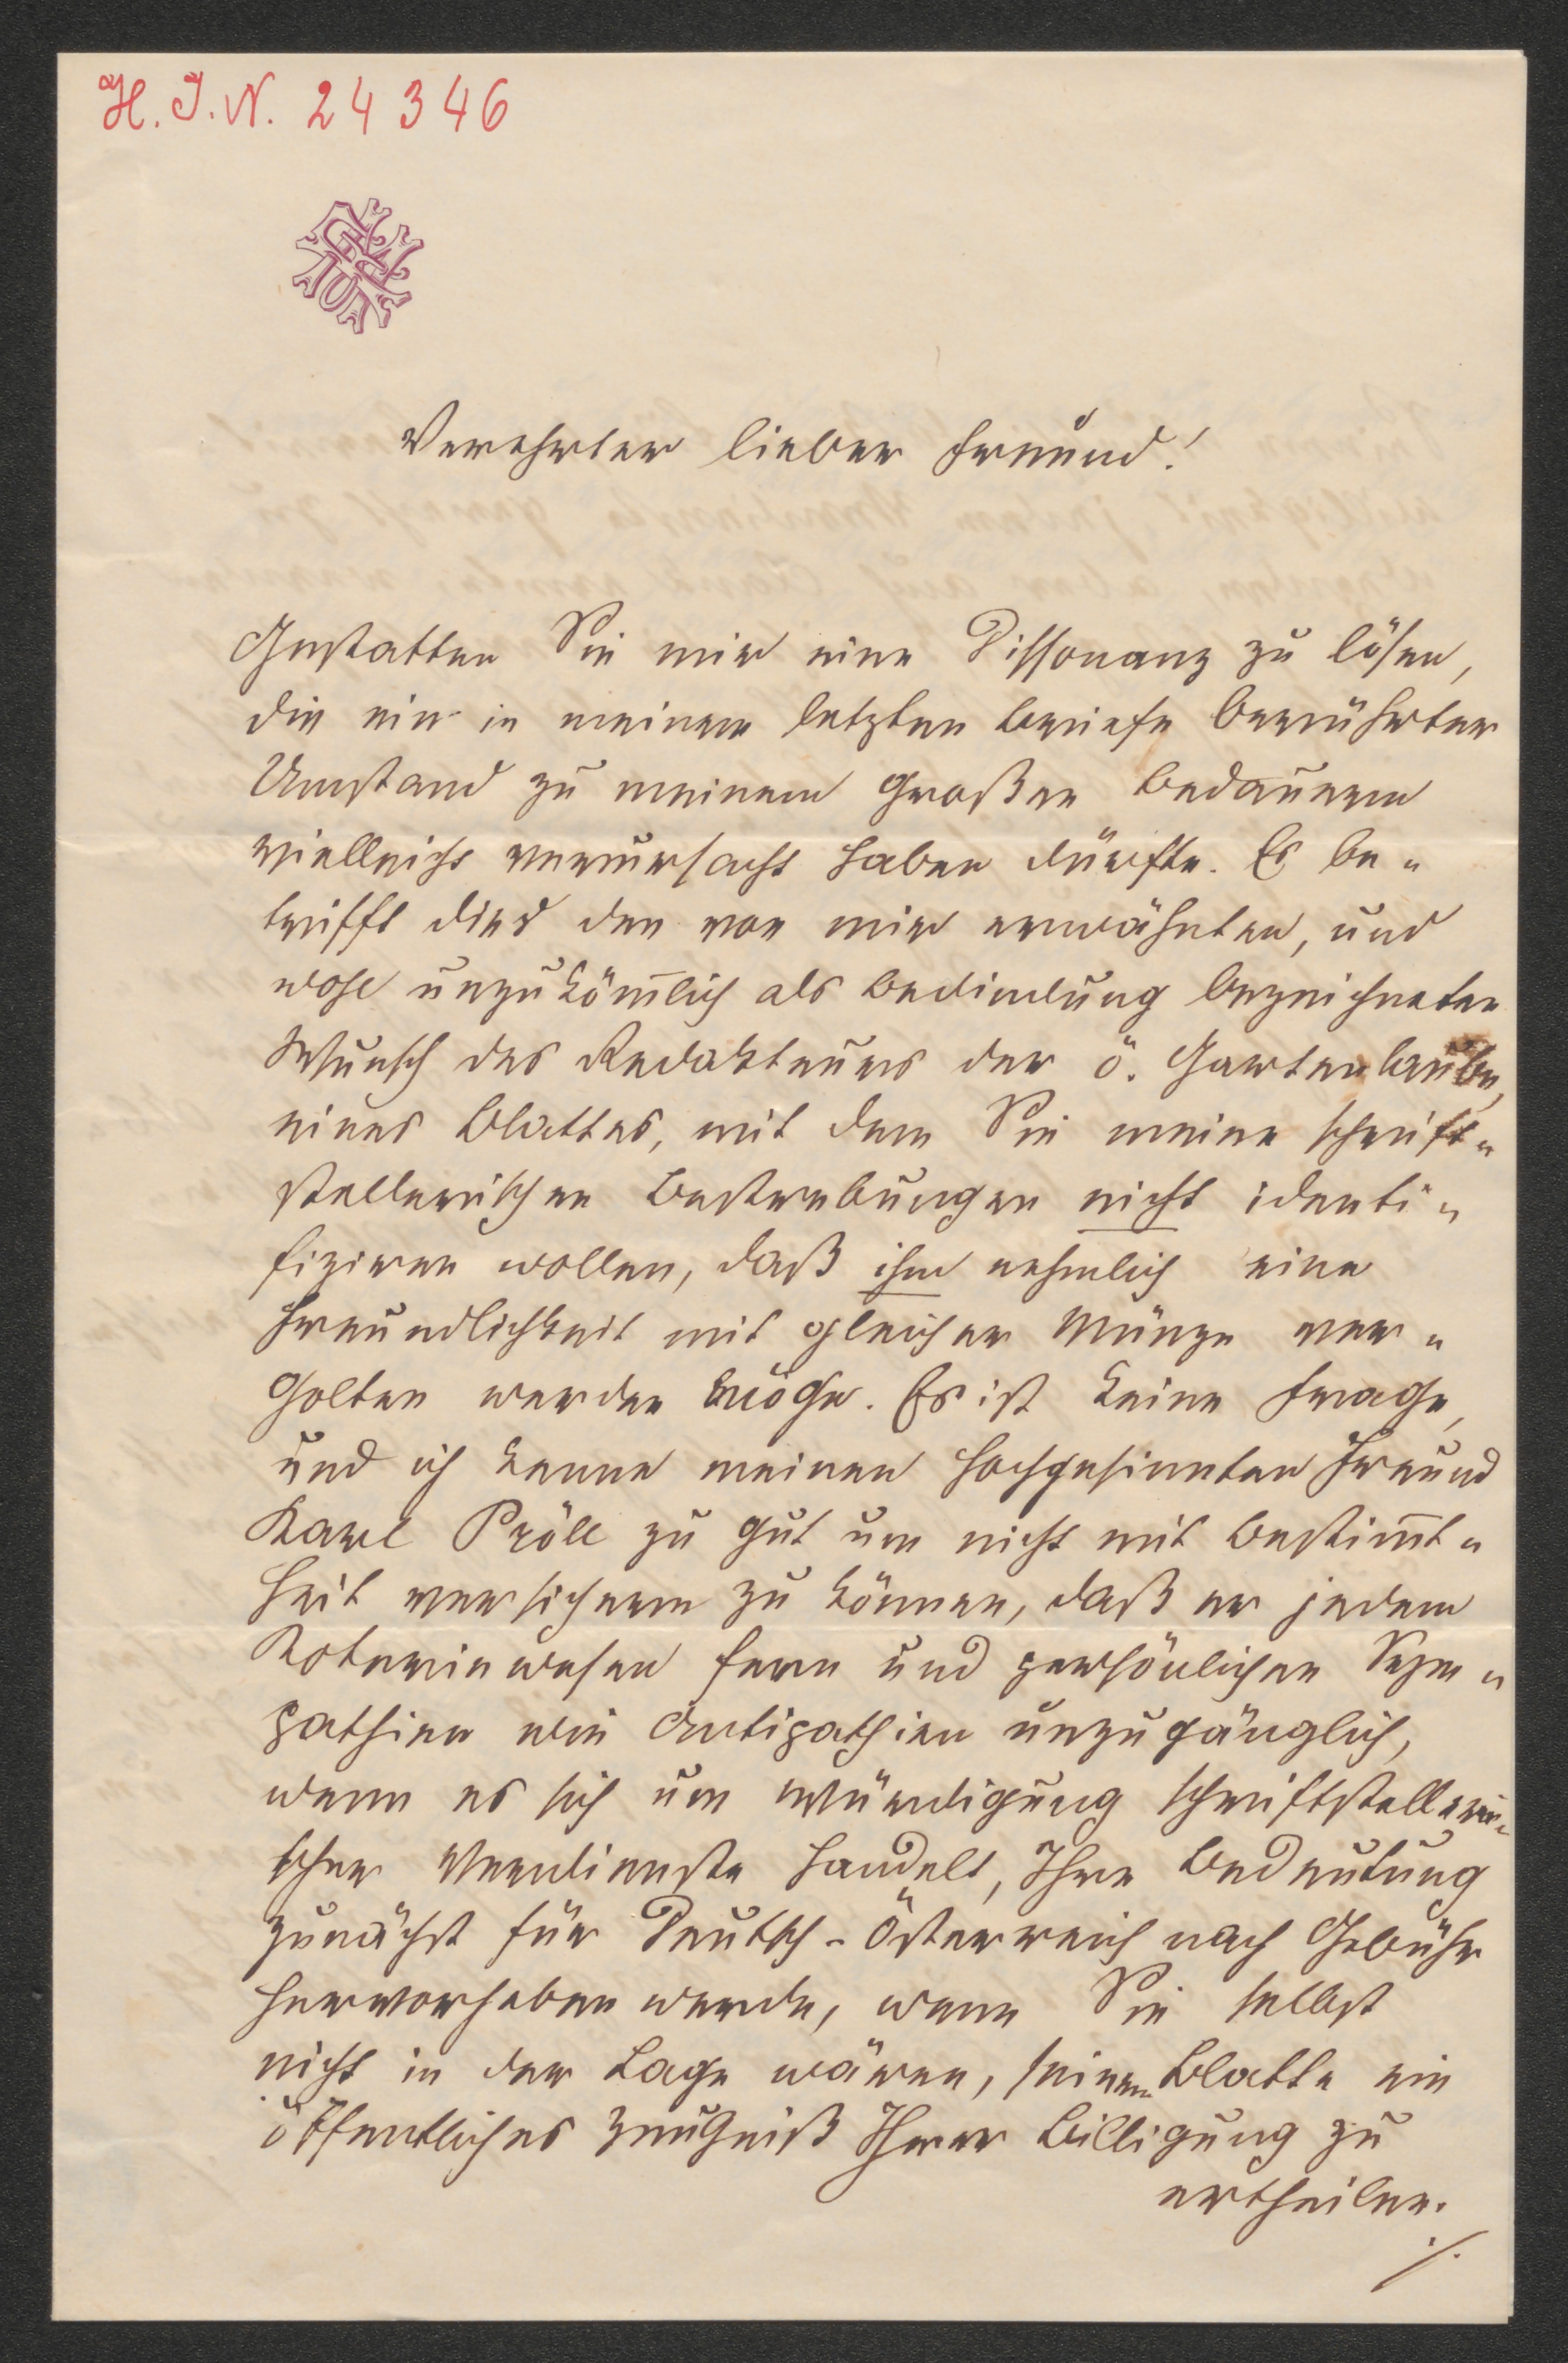 H. I. N. 24346
Verehrter lieber Freund!
Gestatten Sie mir eine Dissonanz zu lösen,
die ein in meinem letzten Briefe berührter
Umstand zu meinem großen Bedauern
vielleicht verursacht haben dürfte. Es be„
trifft dies den von mir erwähnten, und
wohl unzukom̅lich als Bedindung bezeichneten
Wunsch des Redakteurs der ö. Gartenlaube,
eines Blattes, mit dem Sie meine schrift„
stellerischen Bestrebungen nicht identi„
fiziren wollen, daß ihm nehmlich eine
Freundlichkeit mit gleicher Münze ver„
golten werden möge. Es ist keine Frage,
und ich kenne meinen hochgesinnten Freund
Karl Pröll zu gut um nicht mit Bestim̅t„
heit versichern zu können, daß er jedem
Koteriewesen fern und persönlichen Sym„
pathien wie Antipathien unzugänglich,
wenn es sich um Würdigung schriftstelleri„
scher Verdienste handelt, Ihre Bedeutung
zunächst für Deutsch-Österreich nach Gebühr
hervorheben werde, wenn Sie selbst
nicht in der Lage wären, seinem Blatte ein
öffentliches Zeugniß Ihrer Billigung zu
ertheilen.
./.